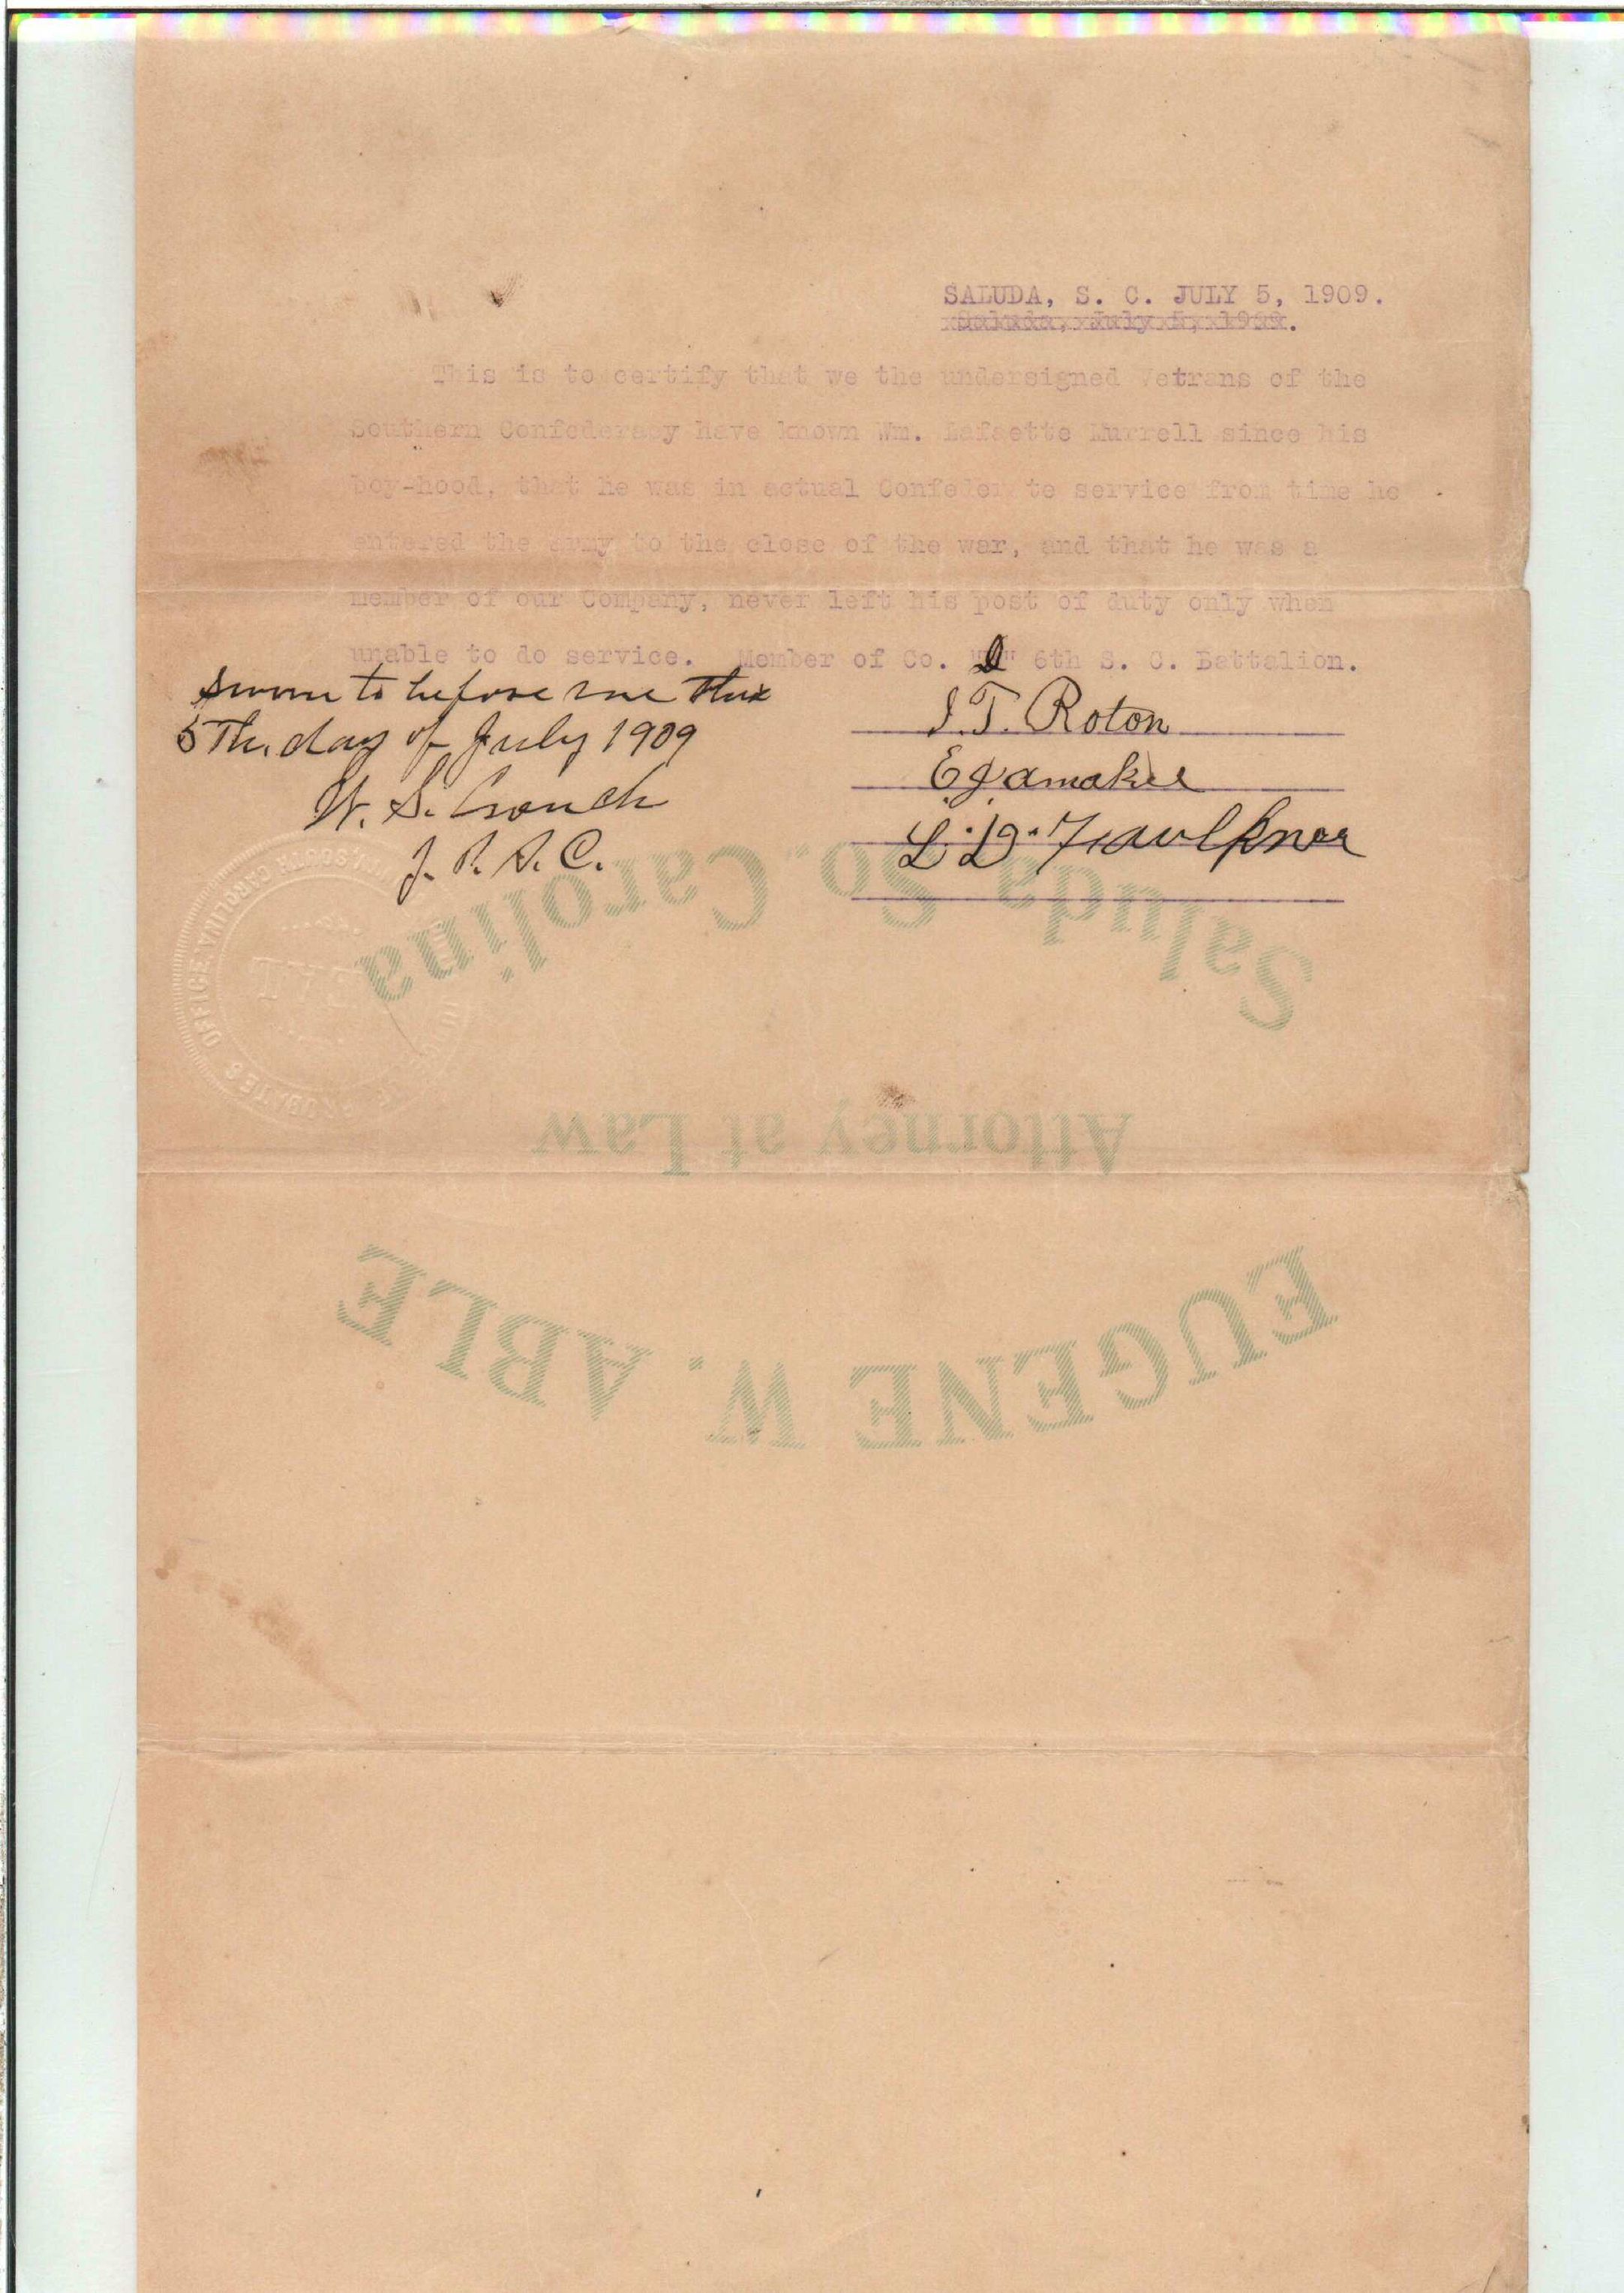 SALUDA, S. C. JULY 5, 1909.
Saluda, July 5, 1909.
This is to certify that we the undersigned Vetrans of the
Southern Confederacy have known Wm. Lafaette Murrell since his
boy-hood, that he was in actual Confederate service from time he
entered the army to the close of the war, and that he was a
member of our Company, never left his post of duty only when
unable to do service. Member of Co. "D" 6th S. C. Battalion.
Sworn to before me this
5Th. day of July 1909
W. S. Crouch
J. P. S. C.
I. T. Roton
E J amaker
L. D. Faulkner
Saluda, So. Carolina
Attorney at Law
EUGENE W. ABLE
OFFICE SOUTH CAROLINA
SEAL